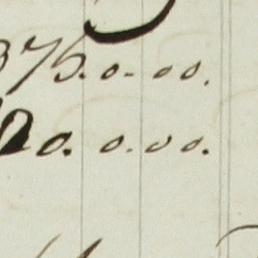 375.0-00.
20. 0-00.